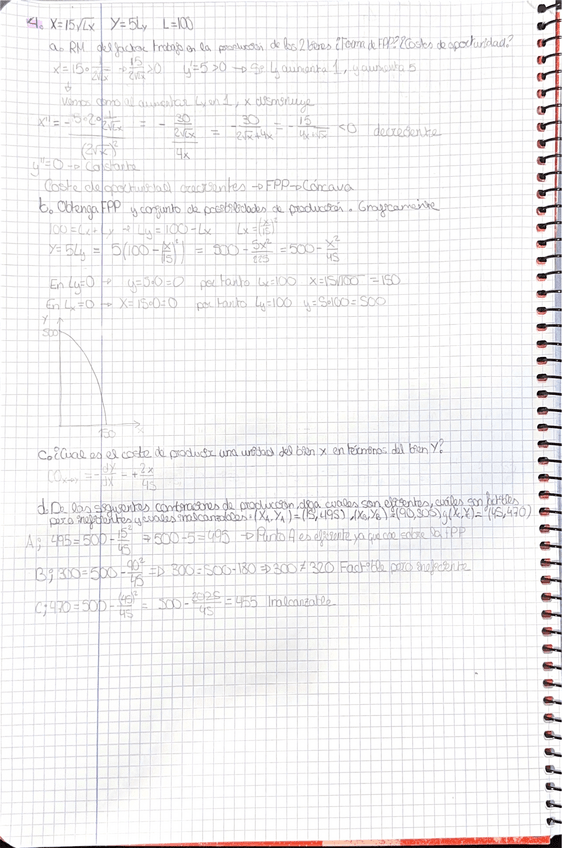 4. X=15√Lx Y=5Ly L=100
a. RM del factor trabajo en la producción de los 2 bienes ¿Forma de FPP? ¿Costes de oportunidad?
x'=15·1/2√Lx → 15/2√Lx >0 y'=5>0 → Si Ly aumenta 1, y aumenta 5
como al aumentar Lx en 1, x disminuye
= - 30/2√Lx / 4x = - 30/2√x·4x = - 15/4x·√x <0 decreciente
y''=0 → Constante
Coste de oportunidad crecientes → FPP → Cóncava
b. Obtenga FPP y conjunto de posibilidades de producción. Gráficamente
100=Lx+Ly → Ly=100-Lx Lx=(x/15)²
Y=5Ly = 5(100-(x/15)²) = 500 - 5x²/225 = 500 - x²/45
En Ly=0 → y=5·0=0 por tanto Lx=100 x=15√100 =150
En Lx=0 → X=15·0=0 por tanto Ly=100 y=5·100=500
Y
500
150
X
c. ¿Cual es el coste de producir una unidad del bien x en términos del bien Y?
= - dY/dx = + 2x/45
d. De las siguientes combinaciones de producción, diga cuales son eficientes, cuáles son factibles
pero ineficientes y cuales inalcanzables. (XA, YA)=(15,495), (XB,YB)=(90,300) y (X,Y)=(45,470)
A; 495=500-15²/45 ⇒ 500-5=495 → Punto A es eficiente, ya que cae sobre la FPP
B; 300=500-90²/45 ⇒ 300=500-180 ⇒ 300≠320 Factible pero ineficiente
C; 470=500-(45)²/45 = 500-2025/45 = 455 Inalcanzable